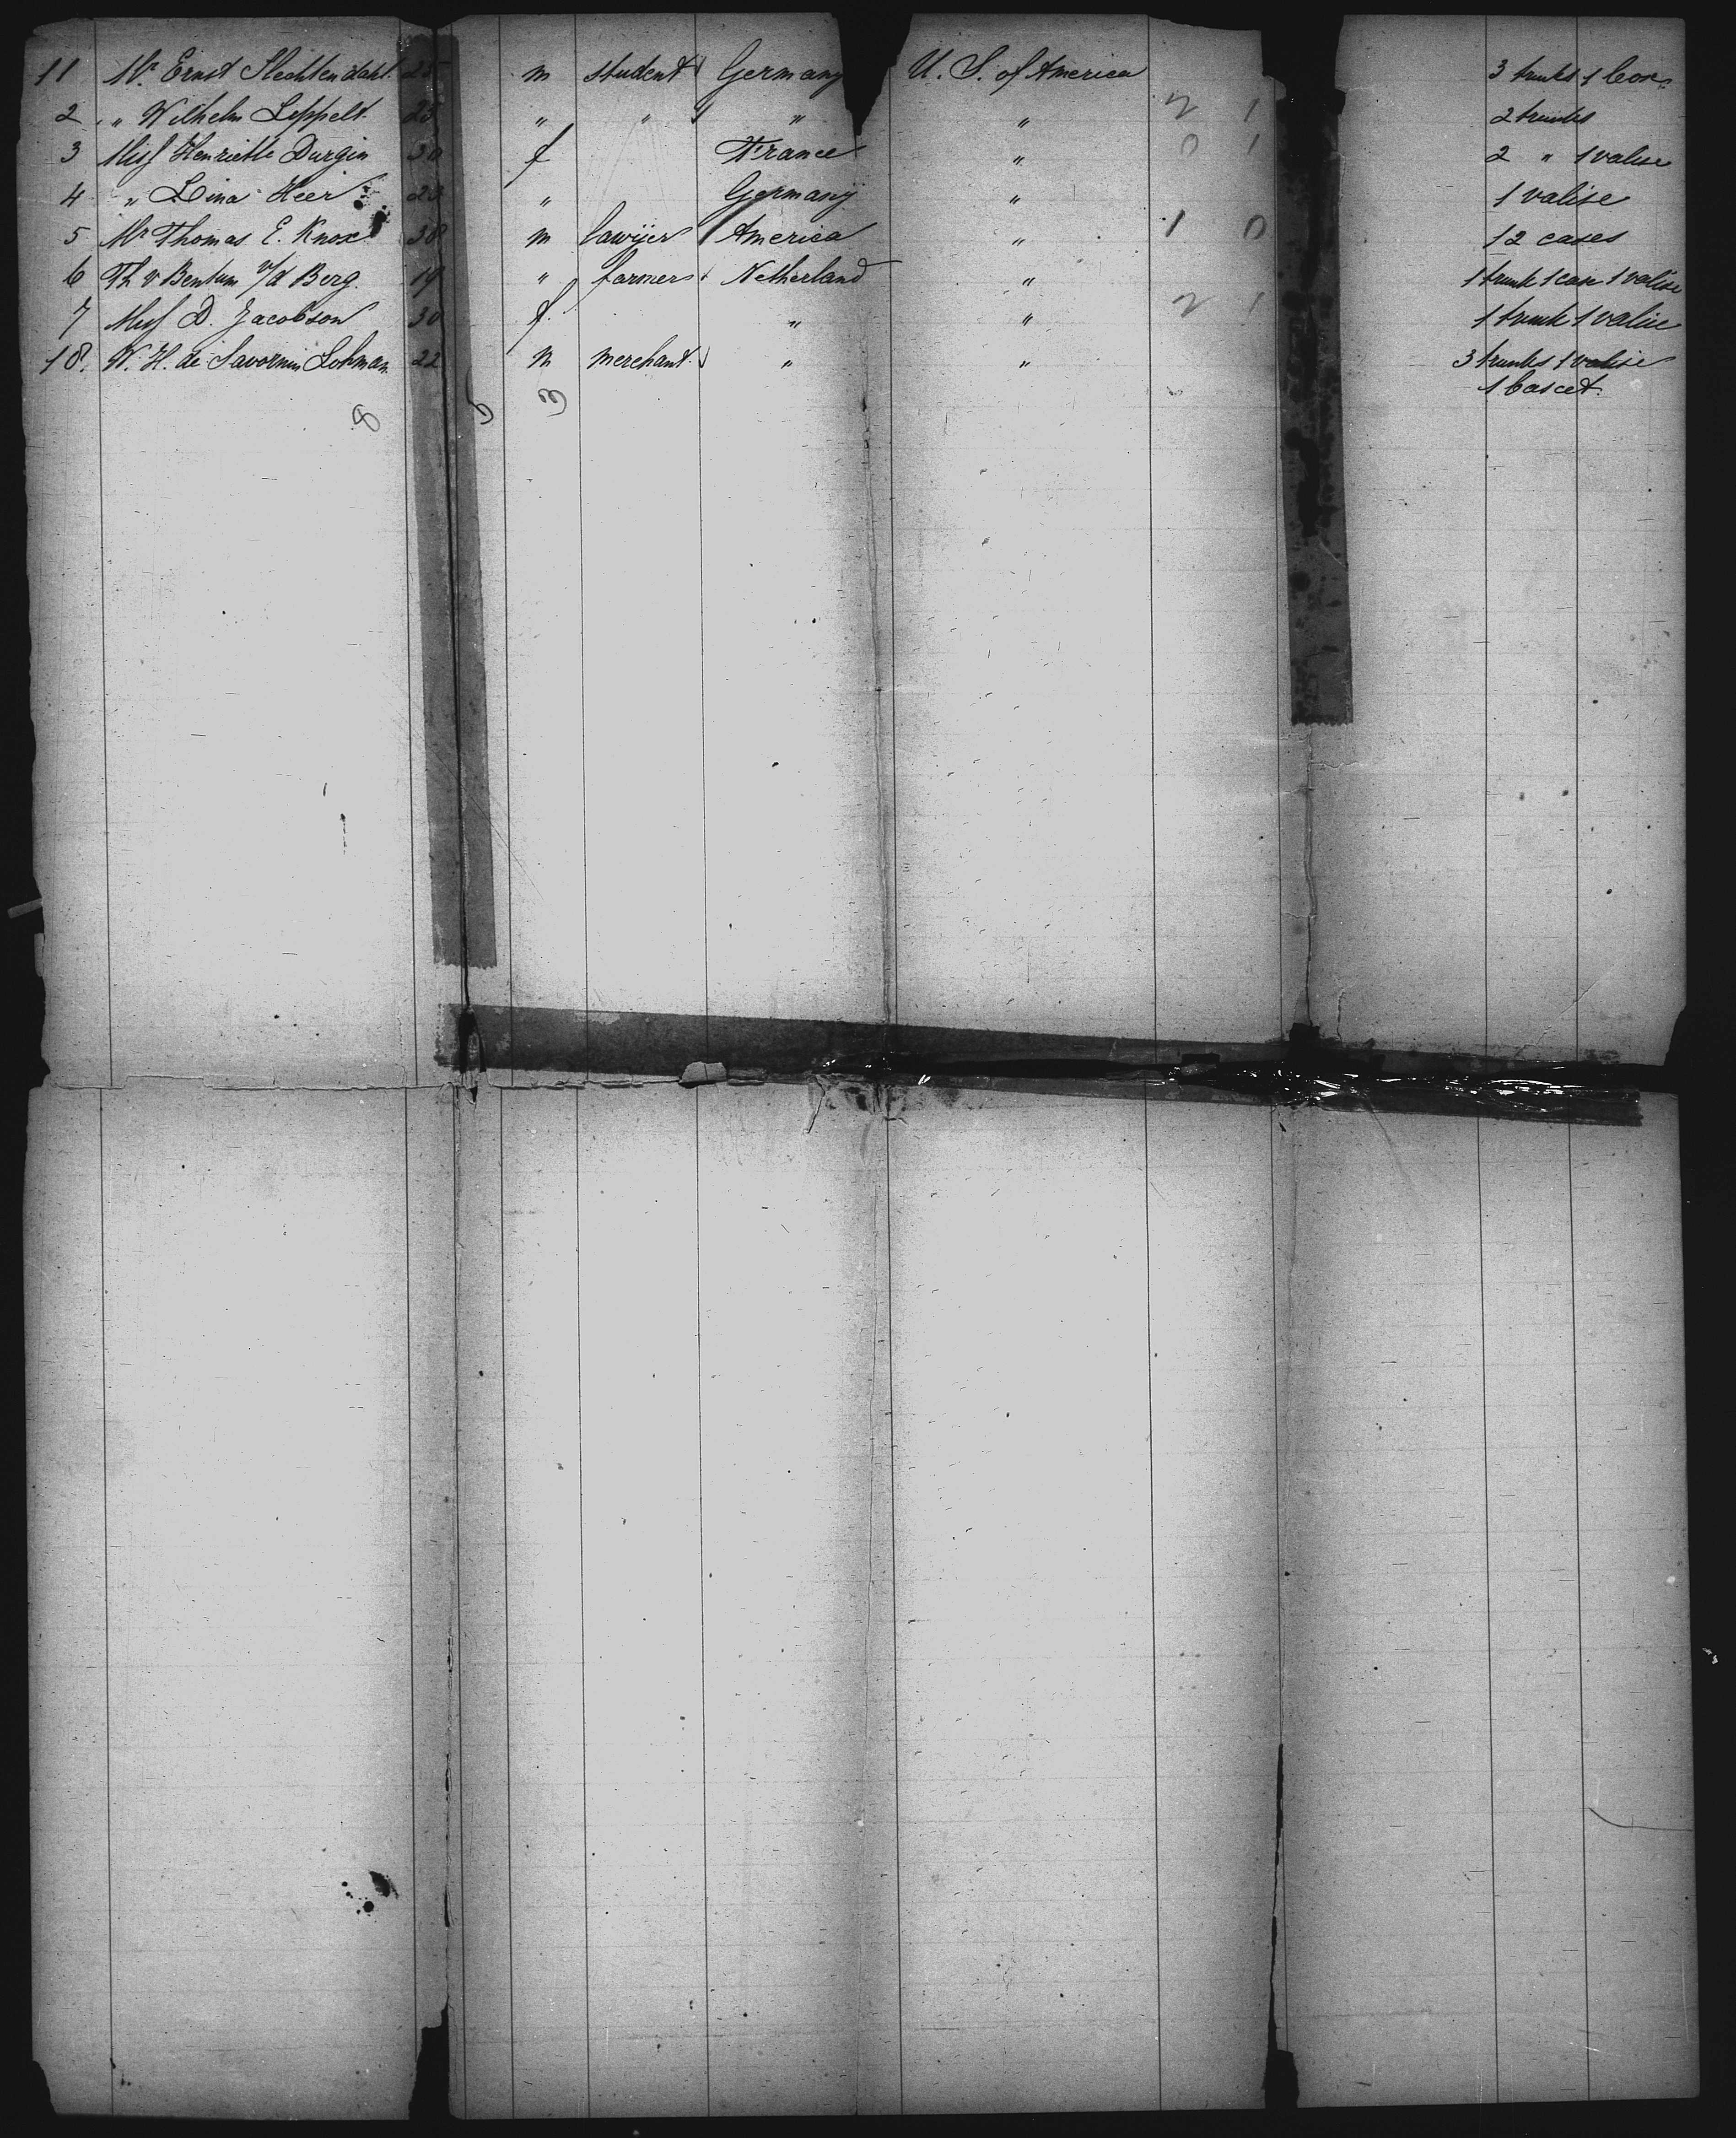 11 Mr. Ernst Slechtendahl. 25 m student Germany U. S. of America 3 trunks 1 box
2 „ Wilhelm Leppelt. 25 „ „ „ „ 2 1 2 trunks
3 Miss Henriette Durgin 30 f France „ 0 1 2 „ 1 valise
4 „ Lina Heer 23 „ Germany „ 1 valise
5 Mr Thomas E. Knox 38 m lawyer America „ 1 0 12 cases
6 Th v Bentum v/d Berg. 19 „ farmer Netherland „ 1 trunk 1 case 1 valise
7 Miss D. Jacobson 30 f. „ „ 2 1 1 trunk 1 valise
18. W. H. de Savornin Lohman 22 m merchant. „ „ 3 trunks 1 valise
1 bascet.
8 5 3